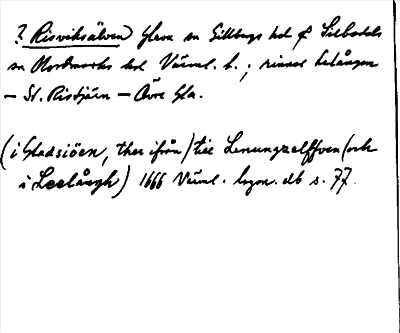 ? Risviksälven Glava sn Gillbergs hd & Silbodals
sn Nordmarks hd Värml. l.; rinner Lelången
— St. Ristjärn — Övre Gla.
(i Gladsiöen, ther ifrån) till Lenungzelffven (och
i Leelångh) 1666 Värml. lagm. db s. 77.